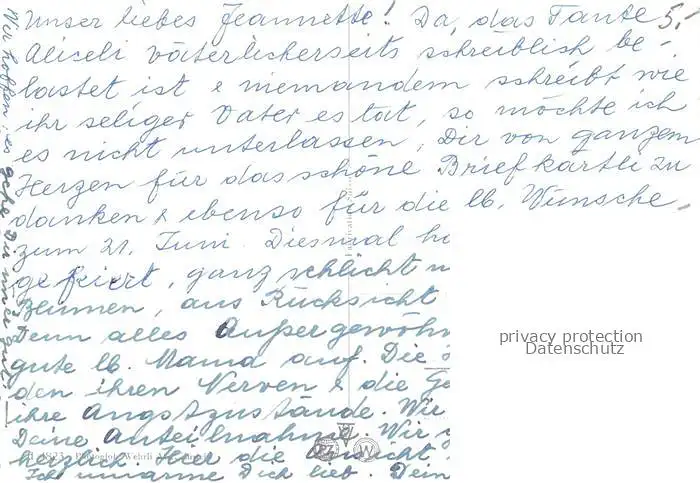 Unser liebes Jeannette! Da, das Tante
Aliceli väterlicherseits schreiblich be-
lastet ist & niemandem schreibt wie
ihr seliger Vater es tat, so möchte ich
es nicht unterlassen, Dir von ganzem
Herzen für das schöne Briefkärtli zu
danken & ebenso für die lb. Wünsche
zum 21. Juni. Diesmal
gefeiert, ganz schlicht
Blumen, aus Rücksicht
Denn alles Außergewöhn
gute lb. Mama auf. Die
den ihren Nerven & die
ihre Angstzustände. Wir
Deine Anteilnahme. Wir
herzlich. Hier die
Ich umarme Dich lieb. Dein
Wir hoffen, es gehe Dir immer gut.
privacy protection
Datenschutz